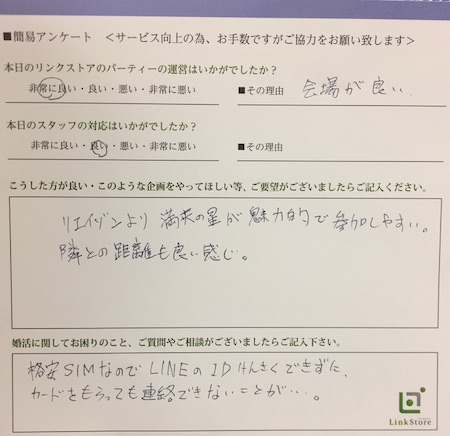 ■簡易アンケート ＜サービス向上の為、お手数ですがご協力をお願い致します＞
本日のリンクストアのパーティーの運営はいかがでしたか？
非常に良い・良い・悪い・非常に悪い ■その理由 会場が良い.
本日のスタッフの対応はいかがでしたか？
非常に良い・良い・悪い・非常に悪い ■その理由
こうした方が良い・このような企画をやってほしい等、ご要望がございましたらご記入ください。
リエイゾンより 満来の星が魅力的で参加しやすい。
隣との距離も良い感じ。
婚活に関してお困りのこと、ご質問やご相談がございましたらご記入下さい。
格安SIMなのでLINEのIDけんさくできずに、
カードをもらっても連絡できないことが…。
LinkStore